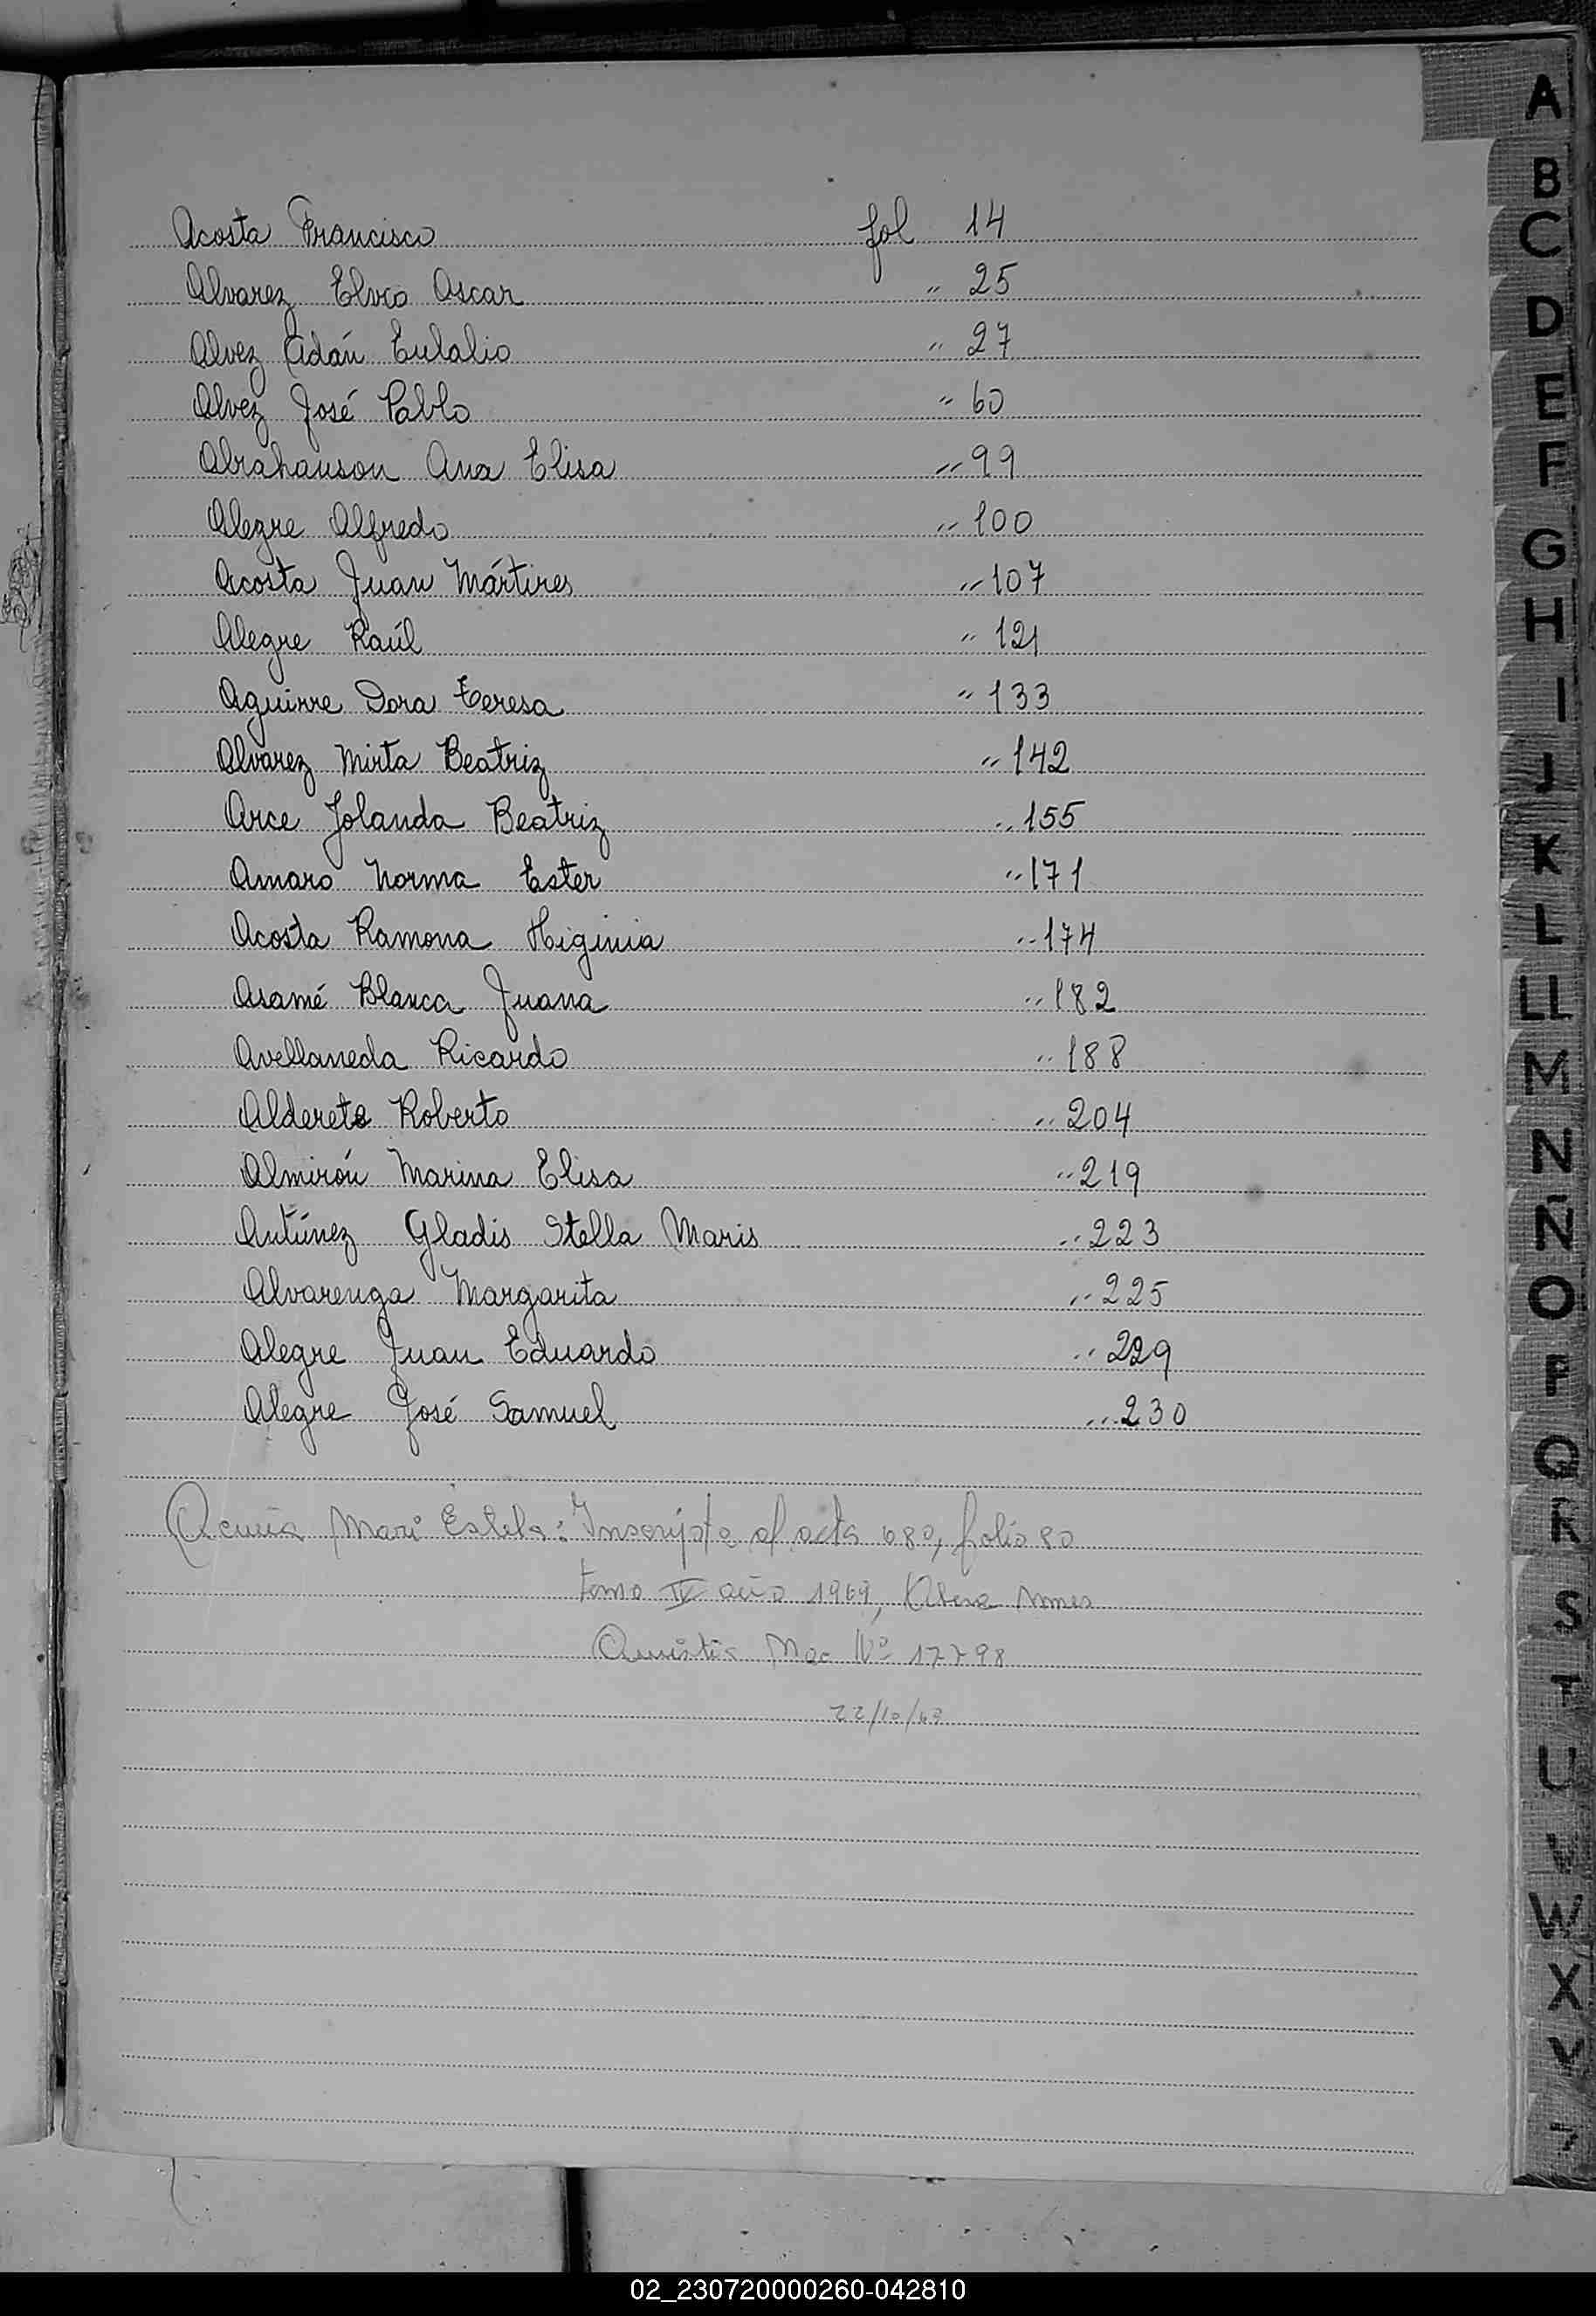 Acosta Francisco fol 14
Alvarez Elvio Oscar " 25
Alvez Adán Eulalio " 27
Alvez José Pablo " 60
Abrahauson Ana Elisa " 99
Alegre Alfredo " 100
Acosta Juan Mártires " 107
Alegre Raúl " 121
Aguirre Dora Teresa " 133
Alvarez Mirta Beatriz " 142
Arce Jolanda Beatriz " 155
Amaro Norma Ester " 171
Acosta Ramona Higinia " 174
Asamé Blanca Juana " 182
Avellaneda Ricardo " 188
Alderete Roberto " 204
Almirón Marina Elisa " 219
Antúnez Gladis Stella Maris " 223
Alvarenga Margarita " 225
Alegre Juan Eduardo " 229
Alegre José Samuel " 230
Acuña Estela: Inscripta al acta 080, folio 80
tomo IV año 1969,
Amistía Nº 17798
22/10/69
A
B
C
D
E
F
G
H
I
J
K
L
LL
M
N
Ñ
O
P
Q
R
S
T
U
V
W
X
Y
Z
02_230720000260-042810